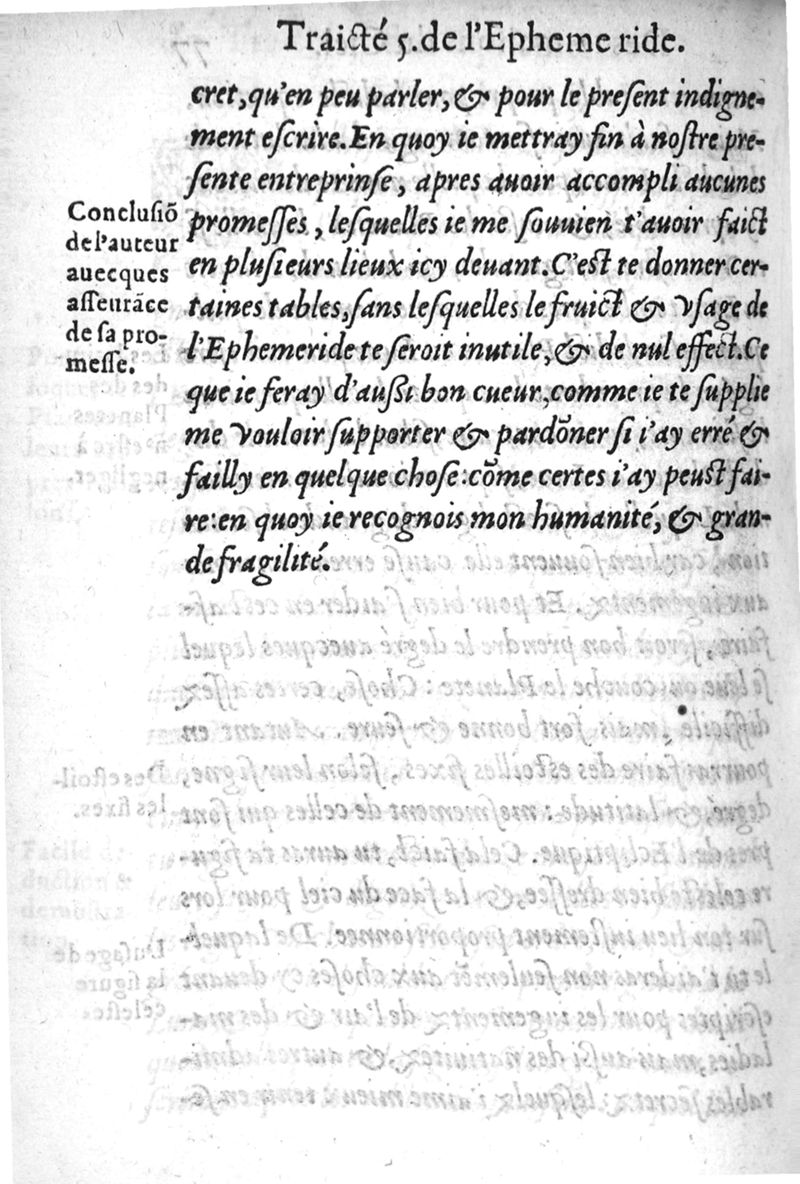 Traicté 5. de l'Epheme ride.
cret, qu'en peu parler, & pour le preſent indigne-
ment eſcrire. En quoy ie mettray fin à noſtre pre-
ſente entreprinſe, apres auoir accompli aucunes
promeſſes, leſquelles ie me ſouuien t'auoir faict
en pluſieurs lieux icy deuant. C'eſt te donner cer-
taines tables, ſans leſquelles le fruict & vſage de
l'Ephemeride te ſeroit inutile, & de nul effect. Ce
que ie feray d'auſſi bon cueur, comme ie te ſupplie
me vouloir ſupporter & pardōner ſi i'ay erré &
failly en quelque choſe: cōme certes i'ay peuſt fai-
re: en quoy ie recognois mon humanité, & gran-
de fragilité.
Concluſiō
de l'auteur
auecques
aſſeurāce
de ſa pro-
meſſe.